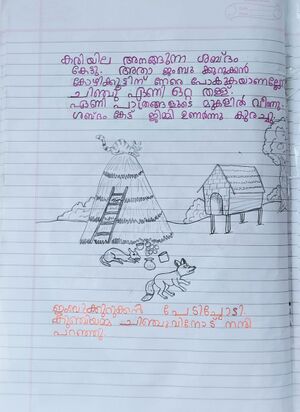 കരിയില അനങ്ങുന്ന ശബ്ദം
കേട്ടു. അതാ ജംബു കുറുക്കൻ
കോഴിക്കൂട്ടിന് നേരെ പോകുകയാണല്ലോ
ചിഞ്ചു ഏണി ഒറ്റ തള്ള്
ഏണി പാത്രങ്ങളുടെ മുകളിൽ വീണു.
ശബ്ദം കേട്ട് ജിമ്മി ഉണർന്നു കുരച്ചു
ജംബുക്കുറുക്കൻ പേടിച്ചോടി.
കുഞ്ഞിയമ്മ ചിഞ്ചുവിനോട് നന്ദി
പറഞ്ഞു